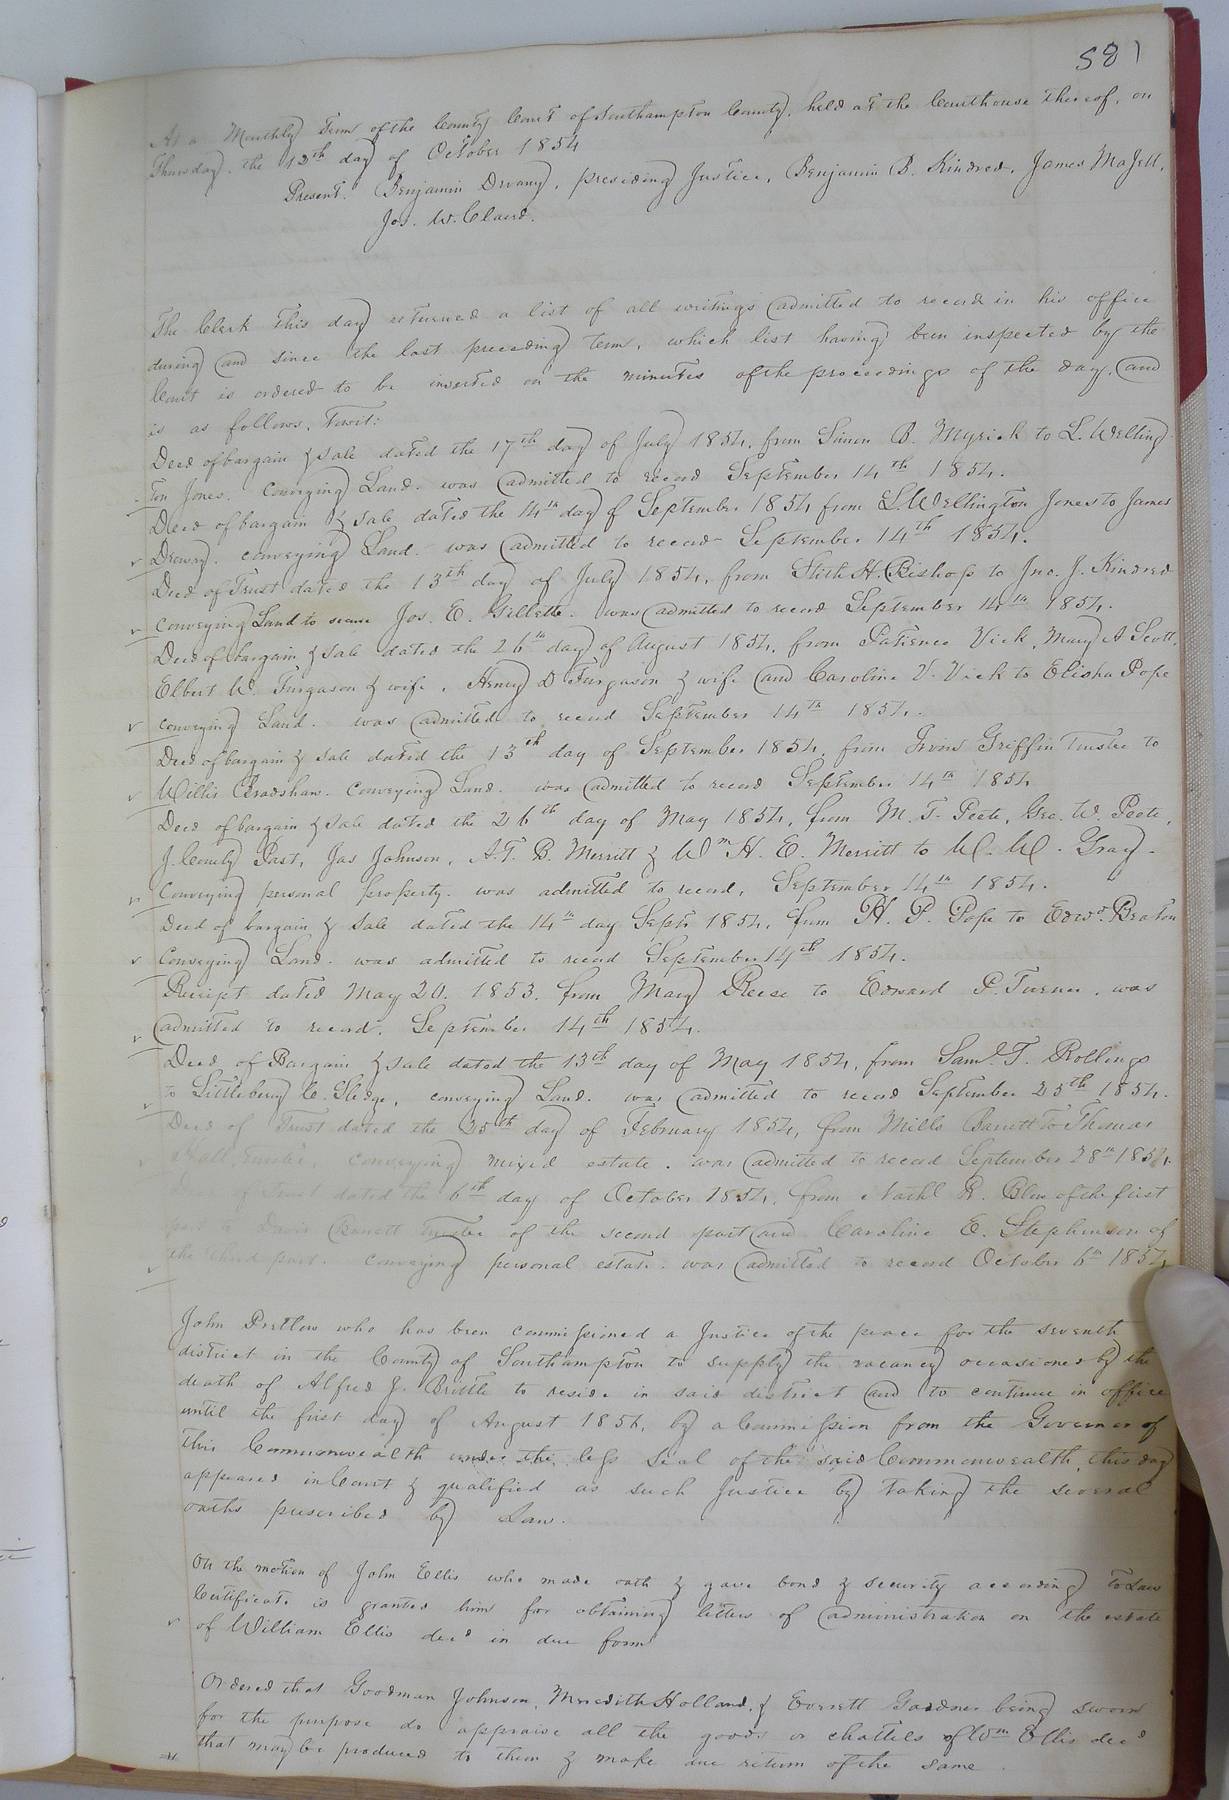 581
At a Monthly Term of the County Court of Southampton County, held at the Courthouse thereof, on
Thursday, the 12th day of October 1854
Present. Benjamin Drewry, presiding Justice, Benjamin B. Kindred, James Majett,
Jos. W. Claud.
The Clerk this day returned a list of all writings admitted to record in his office
during and since the last preceeding term, which list having been inspected by the
Court is ordered to be inserted on the minutes of the proceedings of the day, and
is as follows, Towit:
Deed of bargain & sale dated the 17th day of July 1854, from Simon B. Myrick to L. Welling
ton Jones. Conveying Land. was admitted to record September 14th 1854.
Deed of bargain & sale dated the 14th day of September 1854 from L. Wellington Jones to James
Drewry. conveying Land. was admitted to record September 14th 1854.
Deed of Trust dated the 13th day of July 1854, from Stith H. Bishop to Jno. J. Kindred
conveying Land to secure Jos. E. Gillette. was admitted to record September 14th 1854.
Deed of bargain & sale dated the 26th day of August 1854, from Patience Vick, Mary A Scott,
Elbert W. Furgason & wife, Henry D Furgason & wife and Caroline V. Vick to Elisha Pope
conveying Land. was admitted to record September 14th 1854.
Deed of bargain & sale dated the 13th day of September 1854, from Irvin Griffin Trustee to
Willis Bradshaw. Conveying Land. was admitted to record September 14th 1854
Deed of bargain & sale dated the 26th day of May 1854, from M. T. Peete, Geo. W. Peete,
J. Comly Past, Jas Johnson, A. T. B. Merritt & Wm H. E. Merritt to W. W. Gray.
Conveying personal property. was admitted to record, September 14th 1854.
Deed of bargain & sale dated the 14th day Septr 1854, from H. P. Pope to Edwd. Beaton
Conveying Land. was admitted to record September 14th 1854.
Receipt dated May 20. 1853. from Mary Reese to Edward P. Turner, was
admitted to record. September 14th 1854.
Deed of Bargain & sale dated the 13th day of May 1854, from Saml. T. Rollings
to Littleberry C. Sledge, conveying Land. was admitted to record September 25th 1854.
Deed of Trust dated the 25th day of February 1854, from Mills Barrett to Thomas
Hall, Trustee, conveying mixed estate. was admitted to record September 28th 1854.
Deed of Trust dated the 6th day of October 1854, from Nathl R. Blow of the first
part to David Barrett Trustee of the second part and Caroline E. Stephenson of
the third part. Conveying personal estate. was admitted to record October 6th 1854,
John Pretlow who has been commissioned a Justice of the peace for the seventh
district in the County of Southampton to supply the vacancy occasioned by the
death of Alfred J. Brittle to reside in said district and to continue in office
until the first day of August 1856, by a Commission from the Governor of
this Commonwealth under the less Seal of the said Commonwealth, this day
appeared in Court & qualified as such Justice by taking the several
oaths prescribed by Law.
On the motion of John Ellis who made oath & gave bond & security according to Law
Certificate is granted him for obtaining letters of administration on the estate
of William Ellis decd in due form
Ordered that Goodman Johnson, Meredith Holland, & Everett Gardner being sworn
for the purpose do appraise all the goods or chattels of Wm Ellis decd
that may be produced to them & make due return of the same.